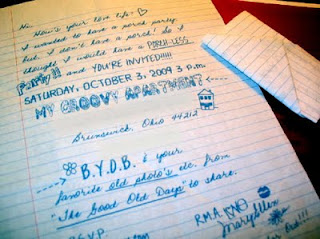 Hi,
How's your love life?
I wanted to have a porch party
but I don't have a porch! So I
thought I would have a PORCH-LESS
Party!! and YOU'RE INVITED!!!!
SATURDAY, OCTOBER 3, 2009 3 P.M.
MY GROOVY APARTMENT
Brunswick, Ohio 44212
B.Y.O.B. & your
favorite old photo's etc. from
"The Good Old Days" to share.
R.S.V.P.